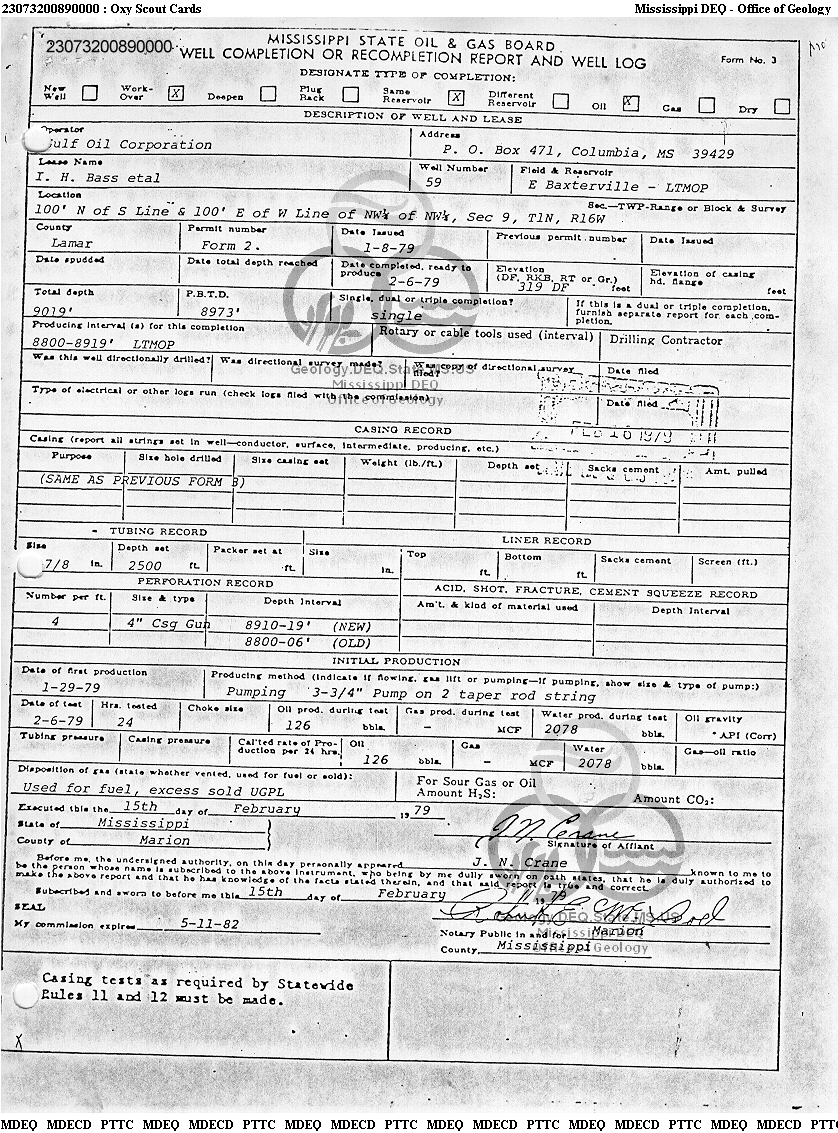 23073200890000 : Oxy Scout Cards
Mississippi DEQ - Office of Geology
23073200890000
MISSISSIPPI STATE OIL & GAS BOARD
WELL COMPLETION OR RECOMPLETION REPORT AND WELL LOG
Form No. 3
DESIGNATE TYPE OF COMPLETION:
New Well Work-Over X Deepen Plug Back Same Reservoir X Different Reservoir Oil X Gas Dry
DESCRIPTION OF WELL AND LEASE
Operator Address
Gulf Oil Corporation P. O. Box 471, Columbia, MS 39429
Lease Name Well Number Field & Reservoir
I. H. Bass etal 59 E Baxterville - LTMOP
Location Sec.—TWP-Range or Block & Survey
100' N of S Line & 100' E of W Line of NW¼ of NW¼, Sec 9, T1N, R16W
County Permit number Date Issued Previous permit number Date Issued
Lamar Form 2. 1-8-79
Date spudded Date total depth reached Date completed, ready to produce Elevation (DF, RKB, RT or Gr.) Elevation of casing hd. flange
2-6-79 319 DF feet feet
Total depth P.B.T.D. Single, dual or triple completion? If this is a dual or triple completion, furnish separate report for each completion.
9019' 8973' single
Producing interval (s) for this completion Rotary or cable tools used (interval) Drilling Contractor
8800-8919' LTMOP
Was this well directionally drilled? Was directional survey made? Was copy of directional survey filed? Date filed
Geology.DEQ.State.MS.US
Mississippi DEQ
Office of Geology
Type of electrical or other logs run (check logs filed with the commission) Date filed
CASING RECORD
FEB 16 1979
Casing (report all strings set in well—conductor, surface, intermediate, producing, etc.)
Purpose Size hole drilled Size casing set Weight (lb./ft.) Depth set Sacks cement Amt. pulled
(SAME AS PREVIOUS FORM 3)
TUBING RECORD LINER RECORD
Size Depth set Packer set at Size Top Bottom Sacks cement Screen (ft.)
7/8 in. 2500 ft. ft. in. ft. ft.
PERFORATION RECORD ACID, SHOT, FRACTURE, CEMENT SQUEEZE RECORD
Number per ft. Size & type Depth Interval Am't. & kind of material used Depth Interval
4 4" Csg Gun 8910-19' (NEW)
8800-06' (OLD)
INITIAL PRODUCTION
Date of first production Producing method (indicate if flowing, gas lift or pumping—if pumping, show size & type of pump:)
1-29-79 Pumping 3-3/4" Pump on 2 taper rod string
Date of test Hrs. tested Choke size Oil prod. during test Gas prod. during test Water prod. during test Oil gravity
2-6-79 24 126 bbls. - MCF 2078 bbls. ° API (Corr)
Tubing pressure Casing pressure Cal'ted rate of Production per 24 hrs. Oil Gas Water Gas—oil ratio
126 bbls. - MCF 2078 bbls.
Disposition of gas (state whether vented, used for fuel or sold): For Sour Gas or Oil
Used for fuel, excess sold UGPL Amount H2S: Amount CO2:
Executed this the 15th day of February 1979
State of Mississippi
J N Crane
Signature of Affiant
County of Marion
Before me, the undersigned authority, on this day personally appeared J. N. Crane known to me to
be the person whose name is subscribed to the above instrument, who being by me duly sworn on oath states, that he is duly authorized to
make the above report and that he has knowledge of the facts stated therein, and that said report is true and correct.
Subscribed and sworn to before me this 15th day of February 1979
SEAL
My commission expires 5-11-82
Notary Public in and for Marion
County, Mississippi
Casing tests as required by Statewide
Rules 11 and 12 must be made.
X
MDEQ MDECD PTTC MDEQ MDECD PTTC MDEQ MDECD PTTC MDEQ MDECD PTTC MDEQ MDECD PTTC MDEQ MDECD PTT